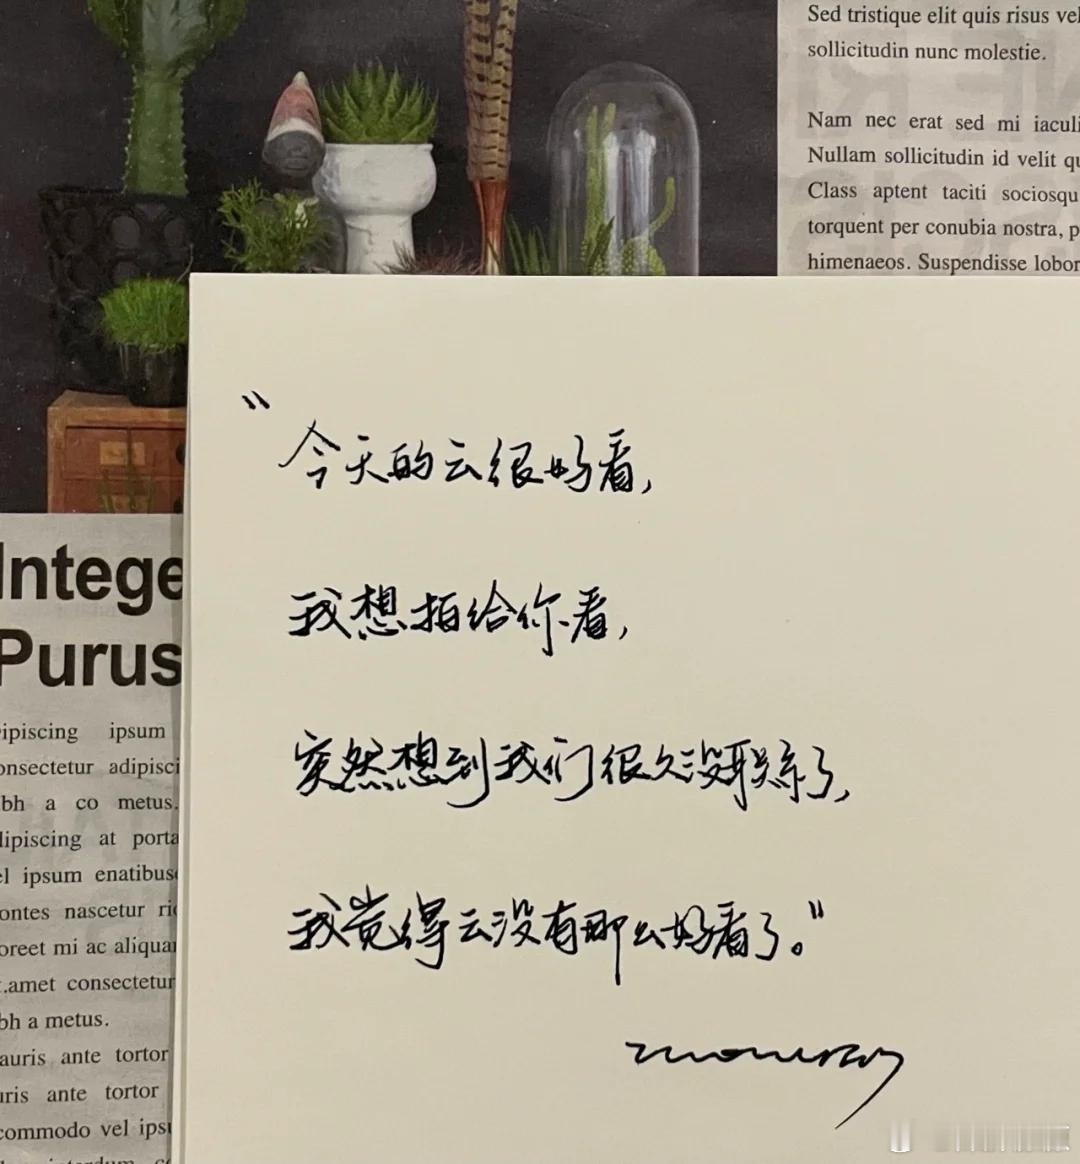 Sed tristique elit quis risus vel
sollicitudin nunc molestie.
Nam nec erat sed mi iaculi
Nullam sollicitudin id velit qu
Class aptent taciti sociosqu
torquent per conubia nostra, p
himenaeos. Suspendisse lobor
"今天的云很好看,
我想拍给你看,
突然想到我们很久没联系了,
我觉得云没有那么好看了。"
Intege
Purus
ipiscing ipsum
onsectetur adipisci
bh a co metus.
lipiscing at porta
el ipsum enatibus
ontes nascetur ri
oreet mi ac aliquar
.amet consectetur
bh a metus.
auris ante tortor
uris ante tortor
commodo vel ipsu